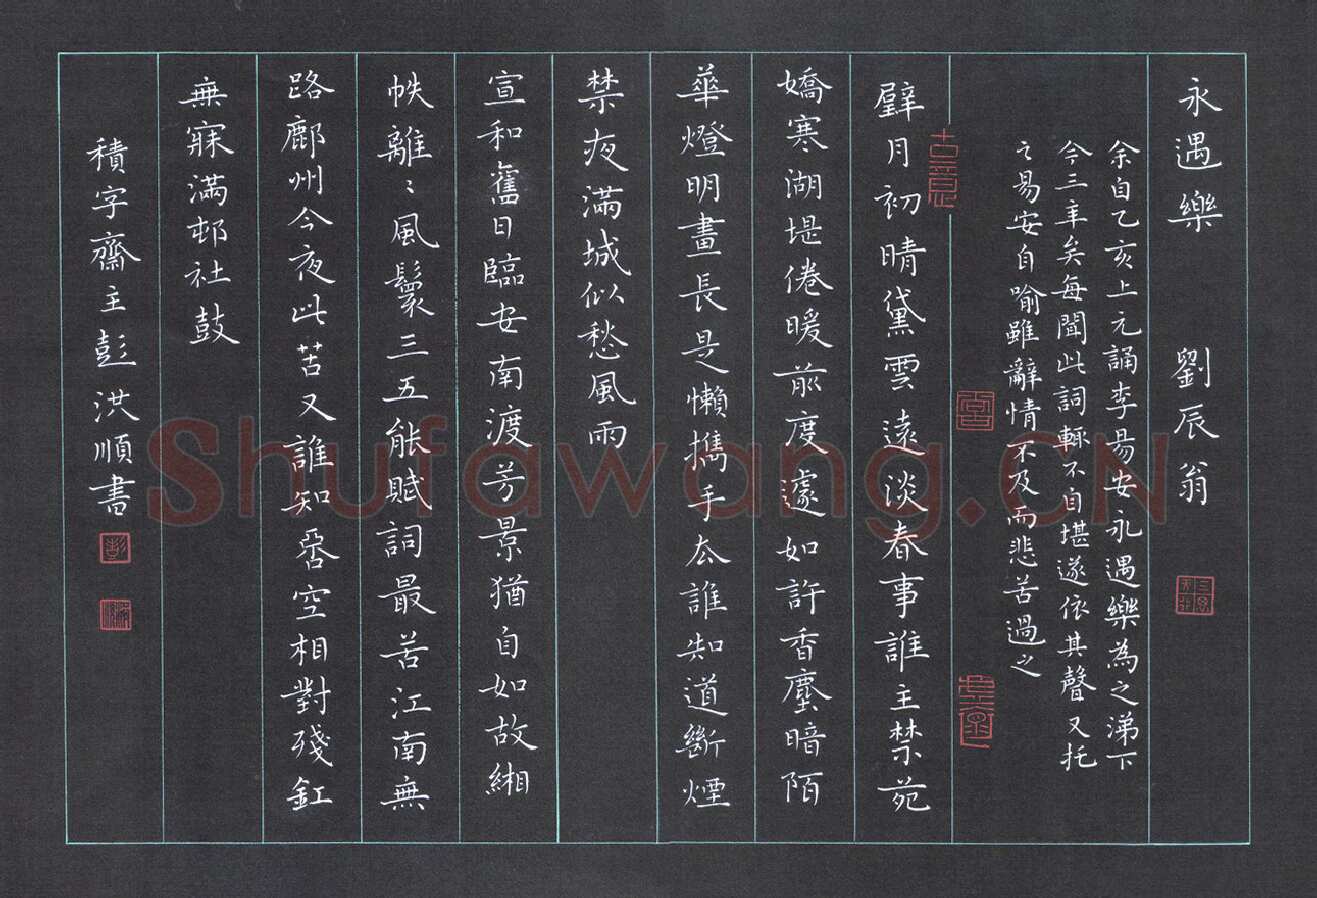 永遇樂 劉辰翁
余自乙亥上元誦李易安永遇樂為之涕下
今三年矣每聞此詞輒不自堪遂依其聲又托
之易安自喻雖辭情不及而悲苦過之
璧月初晴黛雲遠淡春事誰主禁苑
嬌寒湖堤倦暖前度遽如許香塵暗陌
華燈明晝長是懶攜手去誰知道斷煙
禁夜滿城似愁風雨
宣和舊日臨安南渡芳景猶自如故緗
帙離〻風鬟三五能賦詞最苦江南無
路鄜州今夜此苦又誰知否空相對殘釭
無寐滿邨社鼓
積字齋主彭洪順書
古意
Shufawang.CN